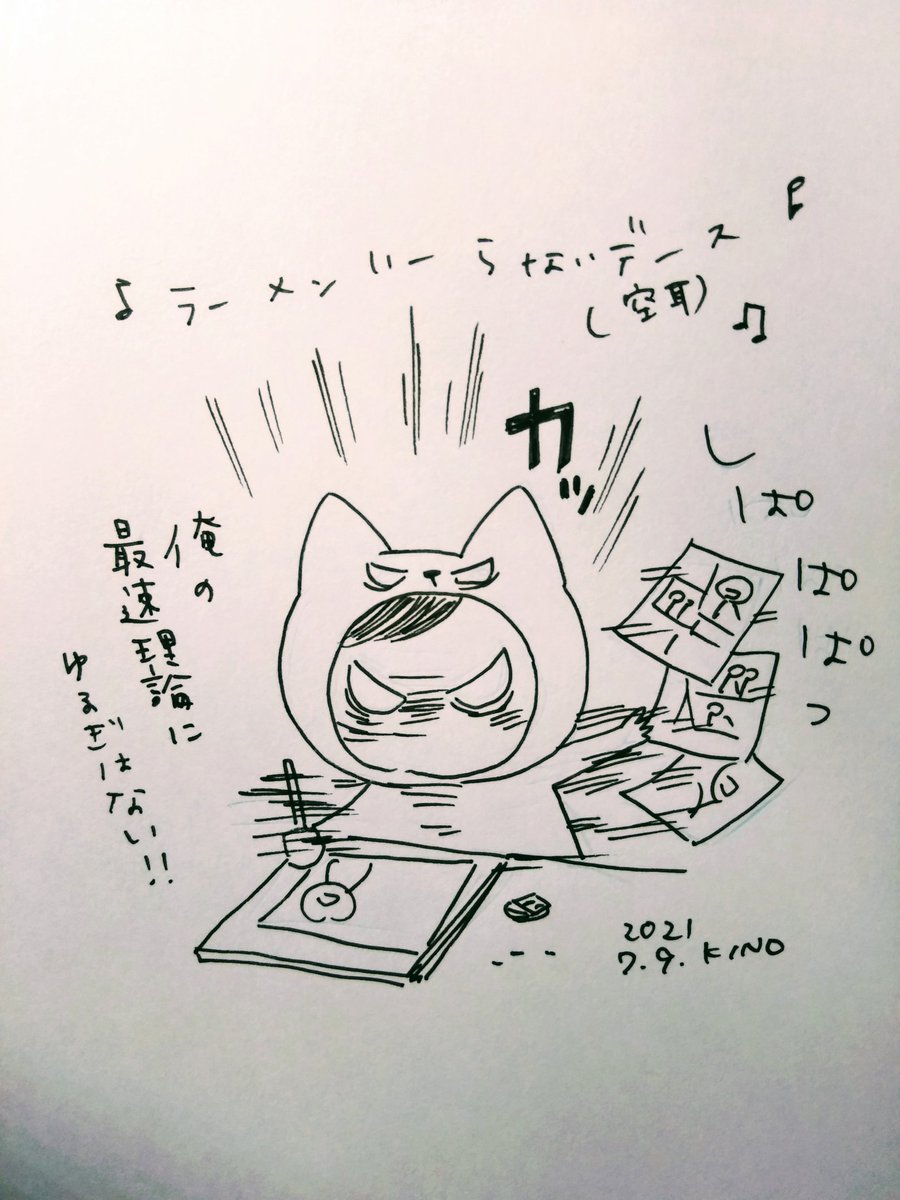 ♪ラーメンいーらないデース♪
(空耳)♫
カッ
しぱぱぱっ
俺の
最速理論に
ゆるぎはない!!
2021
7.9. KINO